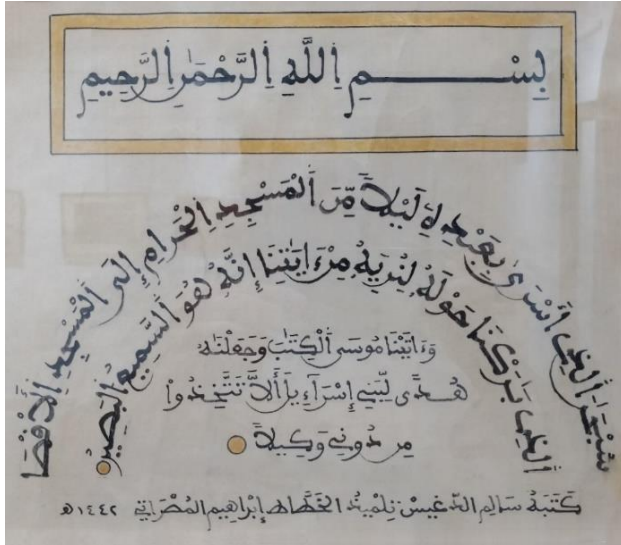 بِسْمِ اِ۬للَّهِ اِ۬لرَّحْمَٰنِ اِ۬لرَّحِيمِ
سُبْحَٰنَ اَ۬لذِےٓ أَسْرَىٰ بِعَبْدِهِۦ لَيْلاً مِّنَ اَ۬لْمَسْجِدِ اِ۬لْحَرَامِ إِلَى اَ۬لْمَسْجِدِ اِ۬لَاقْصَا
اَ۬لذِے بَٰرَكْنَا حَوْلَهُۥ لِنُرِيَهُۥ مِنَ اٰيَٰتِنَآ إِنَّهُۥ هُوَ اَ۬لسَّمِيعُ اُ۬لْبَصِيرُ
وَءَاتَيْنَا مُوسَى اَ۬لْكِتَٰبَ وَجَعَلْنَٰهُ
هُدىً لِّبَنِےٓ إِسْرَآءِيلَ أَلَّا تَتَّخِذُواْ
مِن دُونِے وَكِيلاً
كَتَبَهُ سَالِم الدّغيْس تِلْمِيذُ الخَطَّاط إِبْرَاهِيم المُصْرَاتِي ١٤٤٢هـ